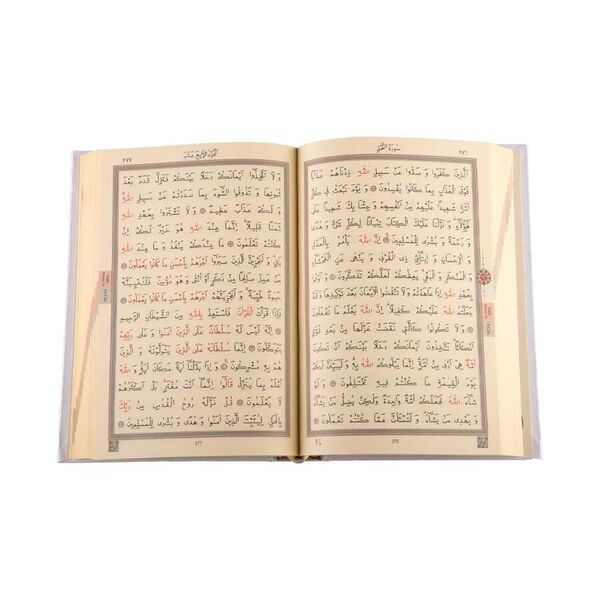 سُورَةُ النَّحْلِ ٢٧٦
اَلَّذِينَ كَفَرُوا وَ صَدُّوا عَنْ سَبِيلِ اللّٰهِ زِدْنَاهُمْ عَذَابًا
فَوْقَ الْعَذَابِ بِمَا كَانُوا يُفْسِدُونَ وَ يَوْمَ نَبْعَثُ فِى كُلِّ
اُمَّةٍ شَهِيدًا عَلَيْهِمْ مِنْ اَنْفُسِهِمْ وَ جِئْنَا بِكَ شَهِيدًا عَلٰى
هٰٓؤُلَٓاءِ وَ نَزَّلْنَا عَلَيْكَ الْكِتَابَ تِبْيَانًا لِكُلِّ شَىْءٍ وَ هُدًى
وَ رَحْمَةً وَ بُشْرٰى لِلْمُسْلِمِينَ اِنَّ اللّٰهَ يَاْمُرُ بِالْعَدْلِ
وَ الْاِحْسَانِ وَ اِيتَٓائِ ذِى الْقُرْبٰى وَ يَنْهٰى عَنِ الْفَحْشَٓاءِ
وَ الْمُنْكَرِ وَ الْبَغْىِ يَعِظُكُمْ لَعَلَّكُمْ تَذَكَّرُونَ وَ اَوْفُوا
بِعَهْدِ اللّٰهِ اِذَا عَاهَدْتُمْ وَ لَا تَنْقُضُوا الْاَيْمَانَ بَعْدَ تَوْكِيدِهَا وَ قَدْ
جَعَلْتُمُ اللّٰهَ عَلَيْكُمْ كَفِيلًا اِنَّ اللّٰهَ يَعْلَمُ مَا تَفْعَلُونَ
وَ لَا تَكُونُوا كَالَّتِى نَقَضَتْ غَزْلَهَا مِنْ بَعْدِ قُوَّةٍ
اَنْكَاثًا تَتَّخِذُونَ اَيْمَانَكُمْ دَخَلًا بَيْنَكُمْ اَنْ تَكُونَ
اُمَّةٌ هِىَ اَرْبٰى مِنْ اُمَّةٍ اِنَّمَا يَبْلُوكُمُ اللّٰهُ بِهِ وَ لَيُبَيِّنَنَّ لَكُمْ
يَوْمَ الْقِيٰمَةِ مَا كُنْتُمْ فِيهِ تَخْتَلِفُونَ وَ لَوْ
شَٓاءَ اللّٰهُ لَجَعَلَكُمْ اُمَّةً وَاحِدَةً وَ لٰكِنْ يُضِلُّ مَنْ يَشَٓاءُ
وَ يَهْدِى مَنْ يَشَٓاءُ وَ لَتُسْئَلُنَّ عَمَّا كُنْتُمْ تَعْمَلُونَ
276
وَلَا
اَلْجُزْءُ الرَّابِعَ عَشَرَ ٢٧٧
وَ لَا تَتَّخِذُٓوا اَيْمَانَكُمْ دَخَلًا بَيْنَكُمْ فَتَزِلَّ قَدَمٌ بَعْدَ
ثُبُوتِهَا وَ تَذُوقُوا السُّٓوءَ بِمَا صَدَدْتُمْ عَنْ سَبِيلِ اللّٰهِ
وَ لَكُمْ عَذَابٌ عَظِيمٌ وَ لَا تَشْتَرُوا بِعَهْدِ اللّٰهِ
ثَمَنًا قَلِيلًا اِنَّمَا عِنْدَ اللّٰهِ هُوَ خَيْرٌ لَكُمْ اِنْ
كُنْتُمْ تَعْلَمُونَ مَا عِنْدَكُمْ يَنْفَدُ وَ مَا عِنْدَ اللّٰهِ
بَاقٍ وَ لَنَجْزِيَنَّ الَّذِينَ صَبَرُٓوا اَجْرَهُمْ بِاَحْسَنِ مَا كَانُوا يَعْمَلُونَ
مَنْ عَمِلَ صَالِحًا مِنْ ذَكَرٍ اَوْ اُنْثٰى وَ هُوَ مُؤْمِنٌ فَلَنُحْيِيَنَّهُ
حَيٰوةً طَيِّبَةً وَ لَنَجْزِيَنَّهُمْ اَجْرَهُمْ بِاَحْسَنِ مَا كَانُوا يَعْمَلُونَ
فَاِذَا قَرَاْتَ الْقُرْاٰنَ فَاسْتَعِذْ بِاللّٰهِ مِنَ الشَّيْطَانِ الرَّجِيمِ
اِنَّهُ لَيْسَ لَهُ سُلْطَانٌ عَلَى الَّذِينَ اٰمَنُوا وَ عَلٰى رَبِّهِمْ
يَتَوَكَّلُونَ اِنَّمَا سُلْطَانُهُ عَلَى الَّذِينَ يَتَوَلَّوْنَهُ وَ الَّذِينَ
هُمْ بِهِ مُشْرِكُونَ وَ اِذَا بَدَّلْنَٓا اٰيَةً مَكَانَ اٰيَةٍ وَ اللّٰهُ
اَعْلَمُ بِمَا يُنَزِّلُ قَالُٓوا اِنَّمَٓا اَنْتَ مُفْتَرٍ بَلْ اَكْثَرُهُمْ
لَا يَعْلَمُونَ قُلْ نَزَّلَهُ رُوحُ الْقُدُسِ مِنْ رَبِّكَ
بِالْحَقِّ لِيُثَبِّتَ الَّذِينَ اٰمَنُوا وَ هُدًى وَ بُشْرٰى لِلْمُسْلِمِينَ
277